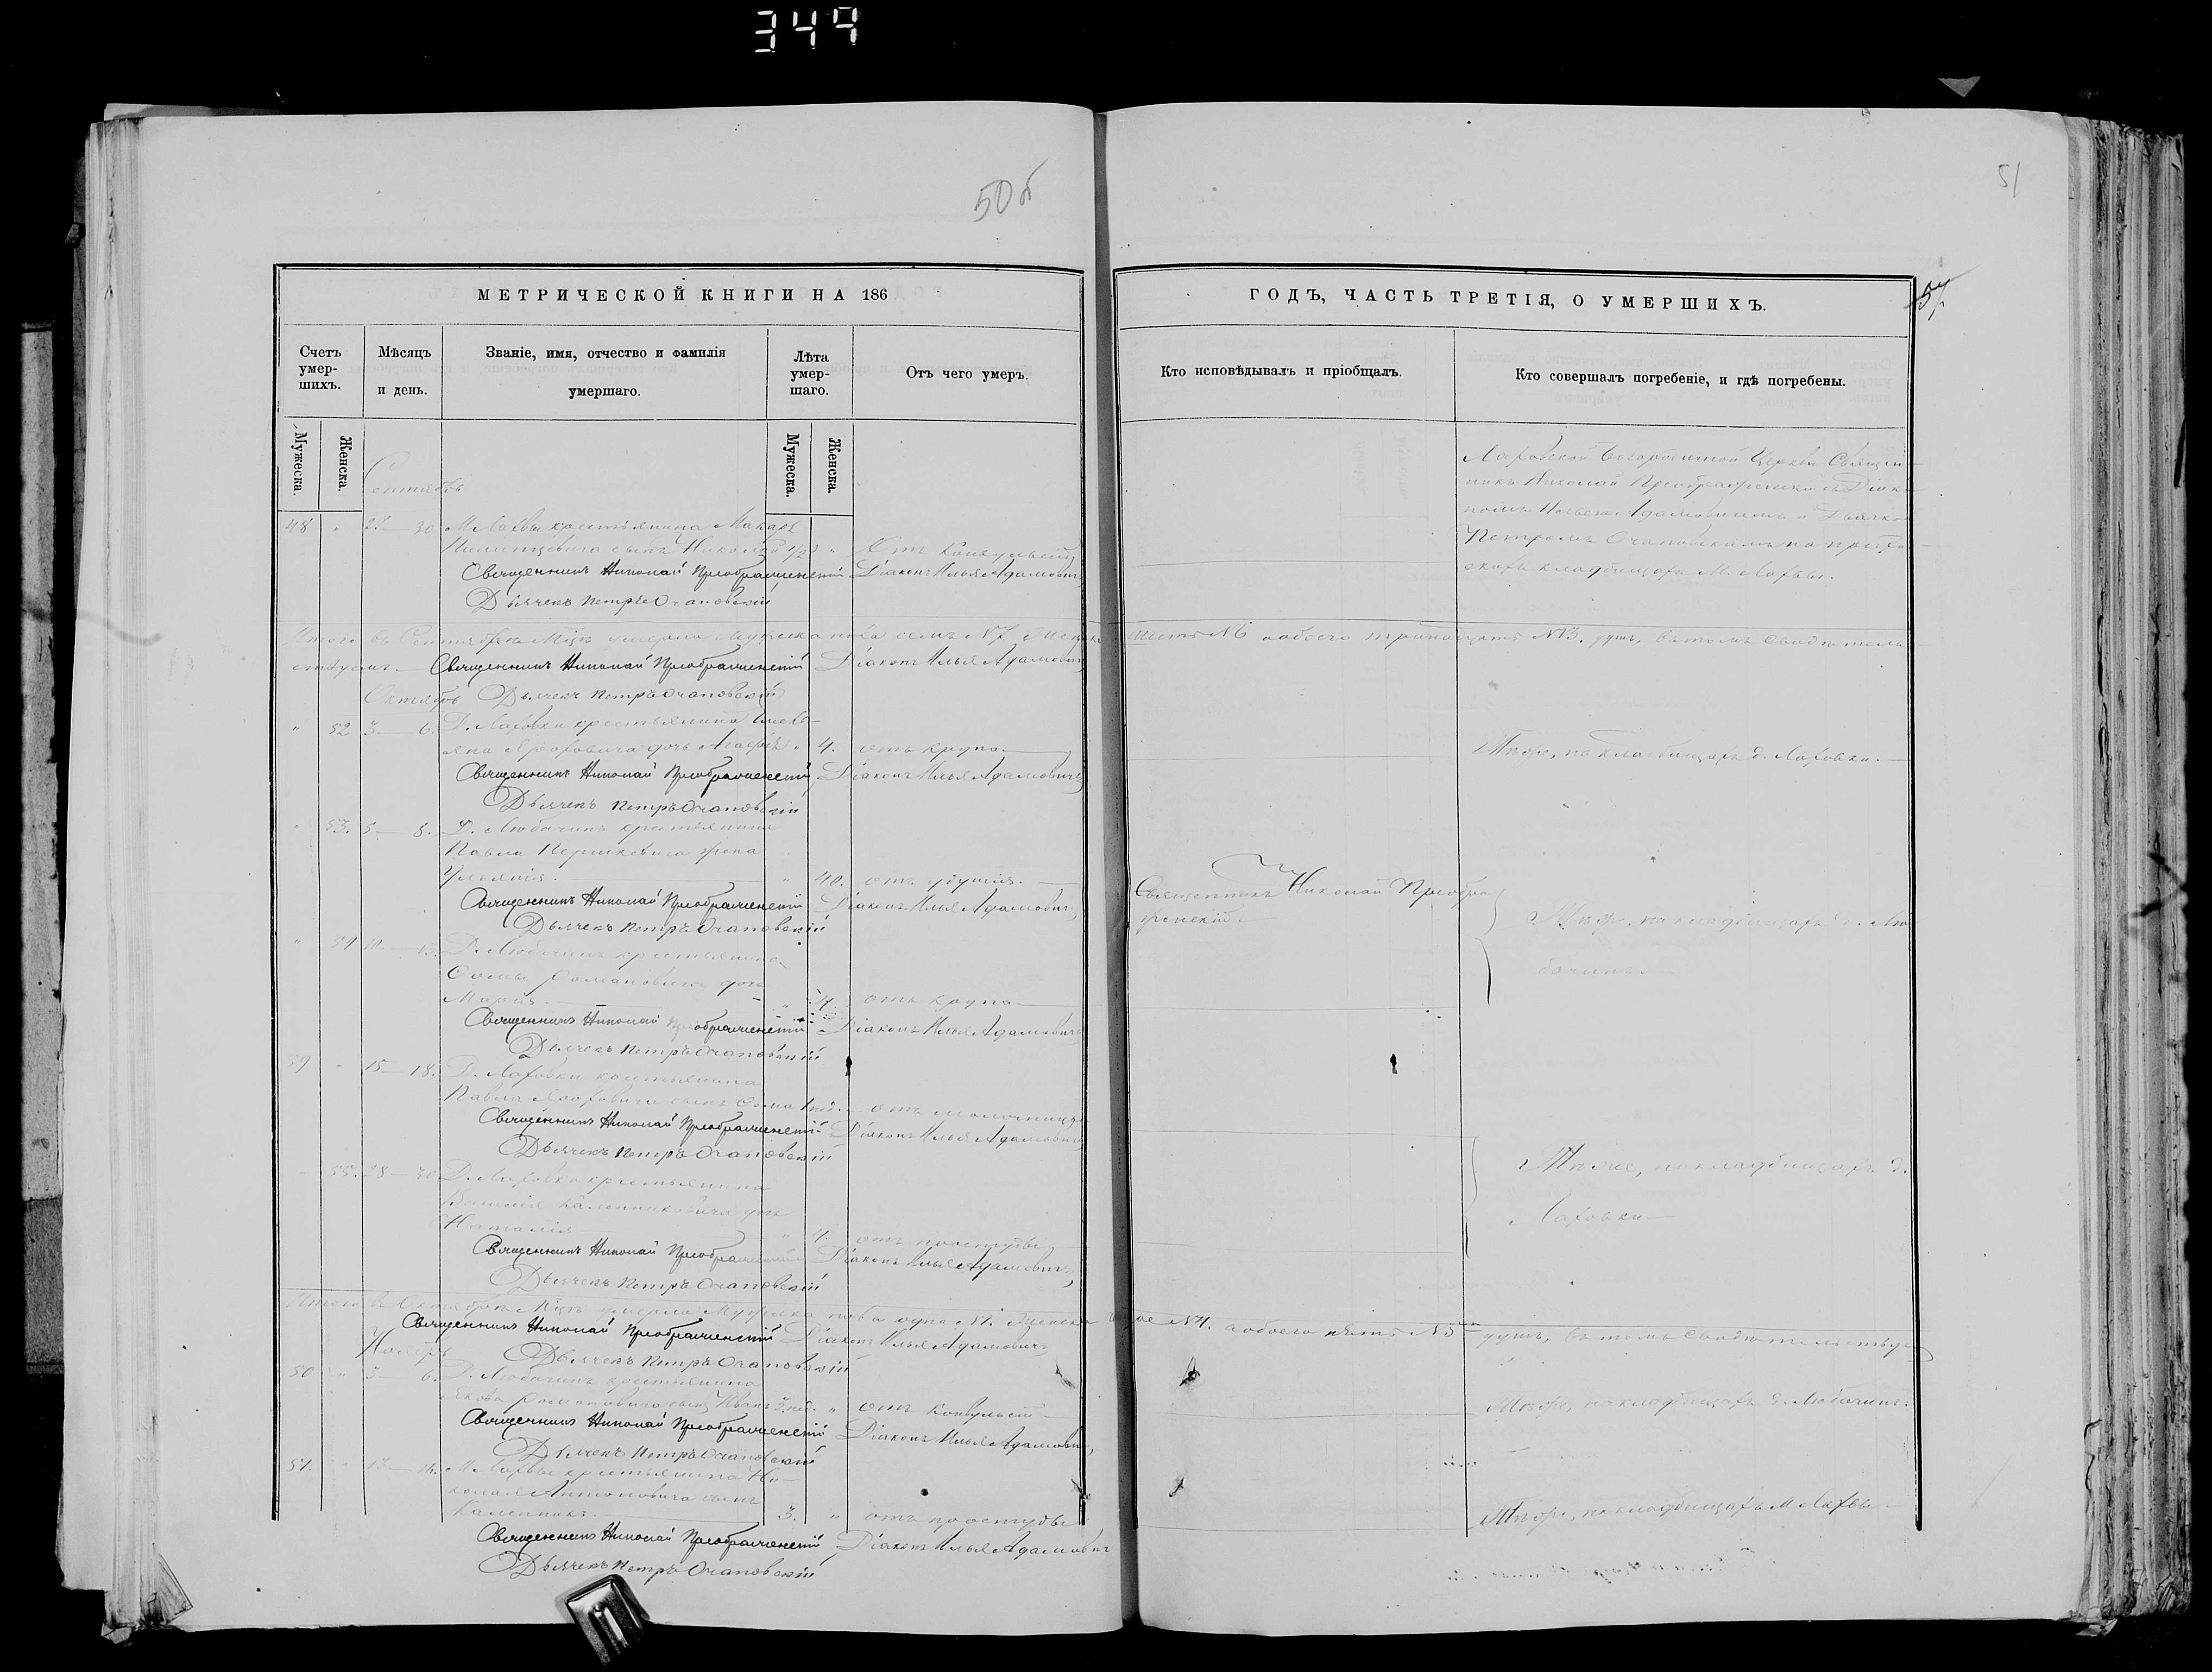 349
50б
51
МЕТРИЧЕСКОЙ КНИГИ НА 186
ГОДЪ, ЧАСТЬ ТРЕТІЯ, О УМЕРШИХЪ.
Счетъ умер-шихъ.
Мѣсяцъ и день.
Званіе, имя, отчество и фамилія умершаго.
Лѣта умер-шаго.
Отъ чего умеръ.
Кто исповѣдывалъ и пріобщалъ.
Кто совершалъ погребеніе, и гдѣ погребены.
Мужеска.
Женска.
Мужеска.
Женска.
Сентябрь
Церкви Священ-
никъ Николай Преображенскій съ Діако-
Петромъ Очаповскимъ на
кладбищахъ М. Лахвы.
48 " 27 30 М. Лахвы крестьянина Макара
сынъ Николай " Отъ конвульсій
Священникъ Николай Преображенскій Діаконъ Илья Адамовичъ
Дьячекъ Петръ Очаповскій
Итого въ Сентябрѣ Мцѣ умерло Мужеска пола семь №7, Женска шесть №6 а обоего тринадцать №13. душъ, въ томъ свидѣтель-
ствуемъ. Священникъ Николай Преображенскій Діаконъ Илья Адамовичъ
Октябрь Дьячекъ Петръ Очаповскій
" 52 3 6. Д. Лаховки крестьянина
дочь 4. отъ крупа Тѣже, на кладбищахъ д. Лаховки.
Священникъ Николай Преображенскій Діаконъ Илья Адамовичъ
Дьячекъ Петръ Очаповскій
" 53. 5 8. Д. Любачинъ крестьянина
Павла жена
Ульянія. " 40. отъ удушія.
Священникъ Николай Преображенскій Діаконъ Илья Адамовичъ
Дьячекъ Петръ Очаповскій
Священникъ Николай Преобра-
женскій
Тѣже, на кладбищахъ д. Лю-
бачинъ.
" 54 10 13. Д. Любачинъ крестьянина
Романовича дочь
Марія. " 4. отъ крупа
Священникъ Николай Преображенскій Діаконъ Илья Адамовичъ
Дьячекъ Петръ Очаповскій
49 " 15 18. Д. Лаховки крестьянина
Павла сынъ Ѳома 1 нед. отъ молочницы
Священникъ Николай Преображенскій Діаконъ Илья Адамовичъ
Дьячекъ Петръ Очаповскій
Тѣже, на кладбищахъ д.
Лаховки
" 55. 28 30 Д. Лаховки крестьянина
Василія Каленниковича дочь
Наталія " 4. отъ простуды
Священникъ Николай Преображенскій Діаконъ Илья Адамовичъ
Дьячекъ Петръ Очаповскій
Итого въ Октябрѣ Мцѣ умерло Мужеска пола одна №1. Женска №4. а обоего пять №5 душъ, въ томъ свидѣтельствуемъ
Священникъ Николай Преображенскій Діаконъ Илья Адамовичъ
Ноябрь Дьячекъ Петръ Очаповскій
50 " 3 6. Д. Любачинъ крестьянина
Якова Романовича сынъ Иванъ 3 нед. " отъ конвульсій Тѣже, на кладбищахъ д. Любачинъ.
Священникъ Николай Преображенскій Діаконъ Илья Адамовичъ
Дьячекъ Петръ Очаповскій
51. " 13 М. Лахвы крестьянина Ни-
колая Антоновича сынъ
Каленникъ. 3. " отъ простуды Тѣже, на кладбищахъ М. Лахвы
Священникъ Николай Преображенскій Діаконъ Илья Адамовичъ
Дьячекъ Петръ Очаповскій